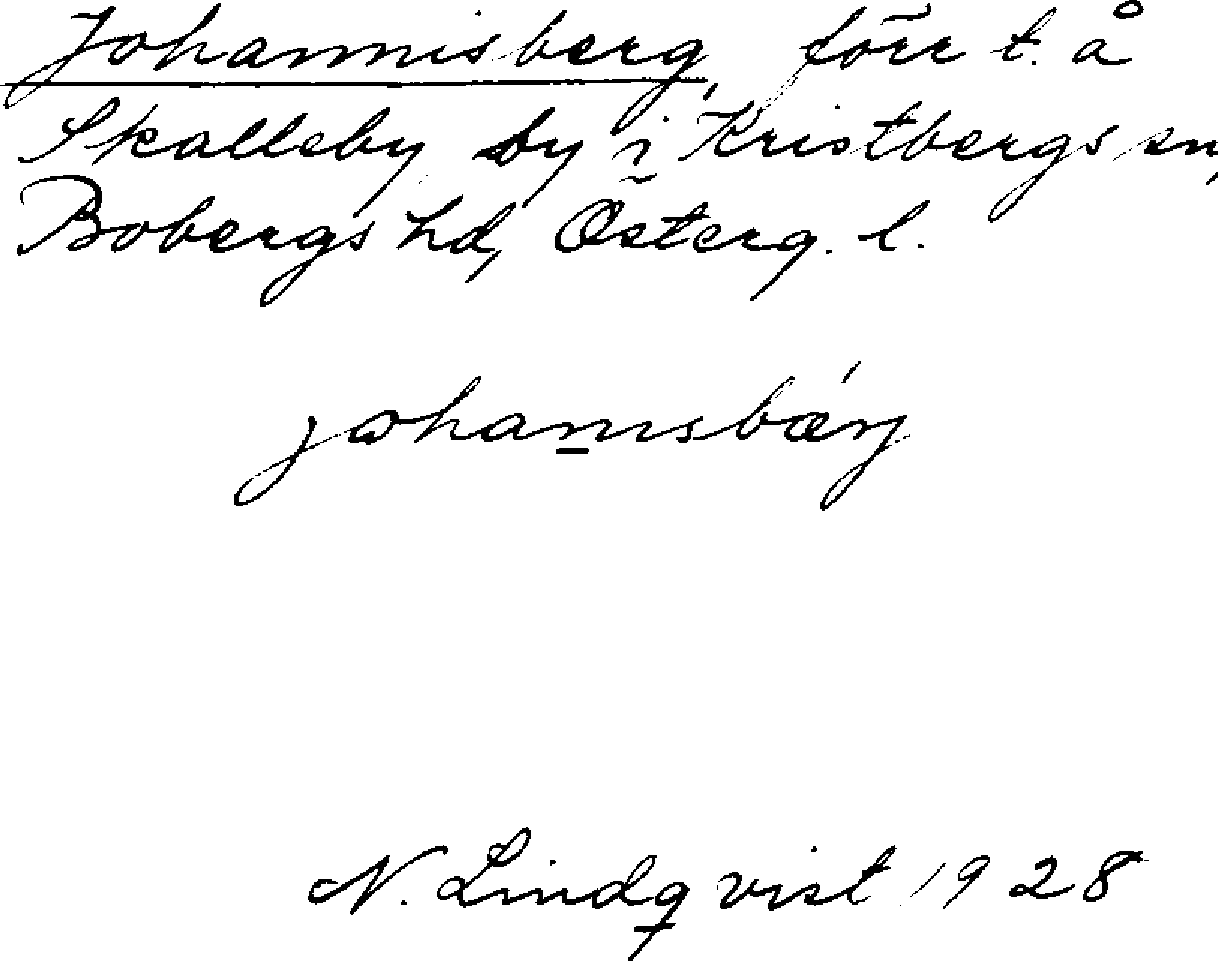 Johannisberg, förr t. å
Skalleby by i Kristbergs sn,
Bobergs hd, Österg. l.
johanisbǽrj
N. Lindqvist 1928